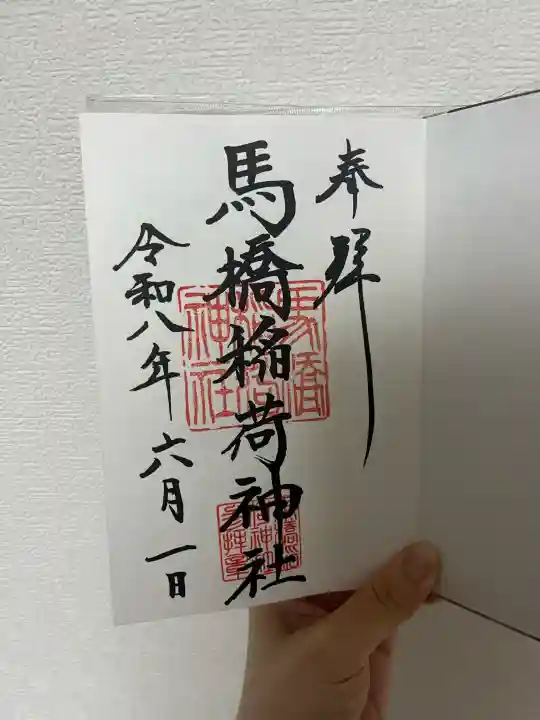 奉拜
馬橋稲荷神社
令和八年六月一日
馬橋
稲荷
神社